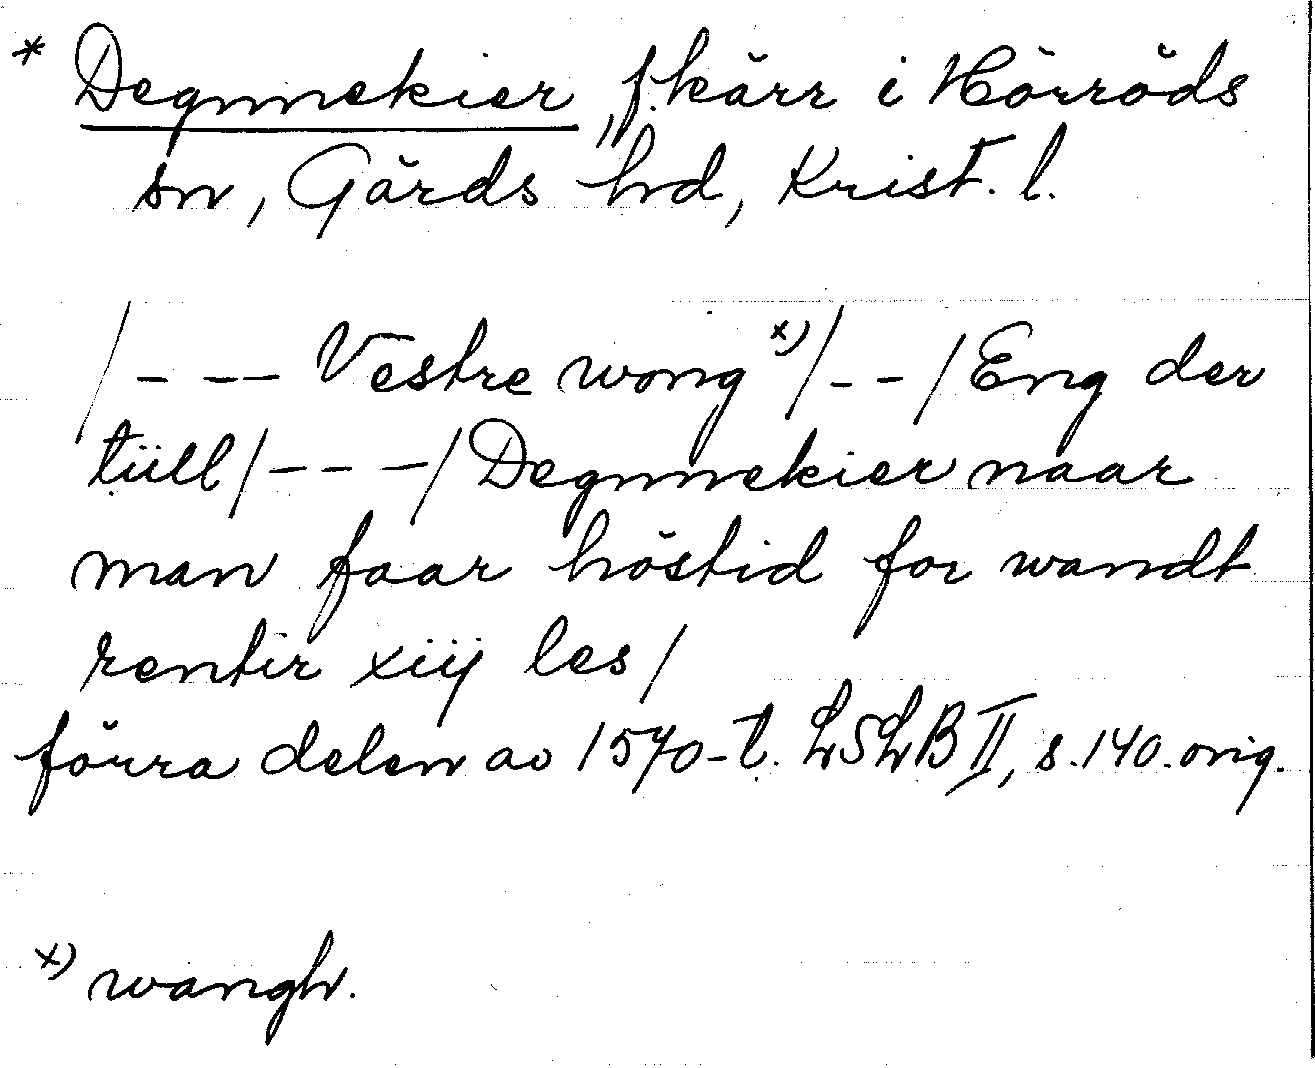 * Degnnekier, f. kärr i Hörröds
sn, Gärds hd, Krist. l.
/- -- Vestre wong x)/- -/ Eng der
tüll /- - -/ Degnnekier naar
man faar höstid for wandt
rentir xiij les /
förra delen av 1570-t. LSLB II, s. 140. orig.
x) wangh.